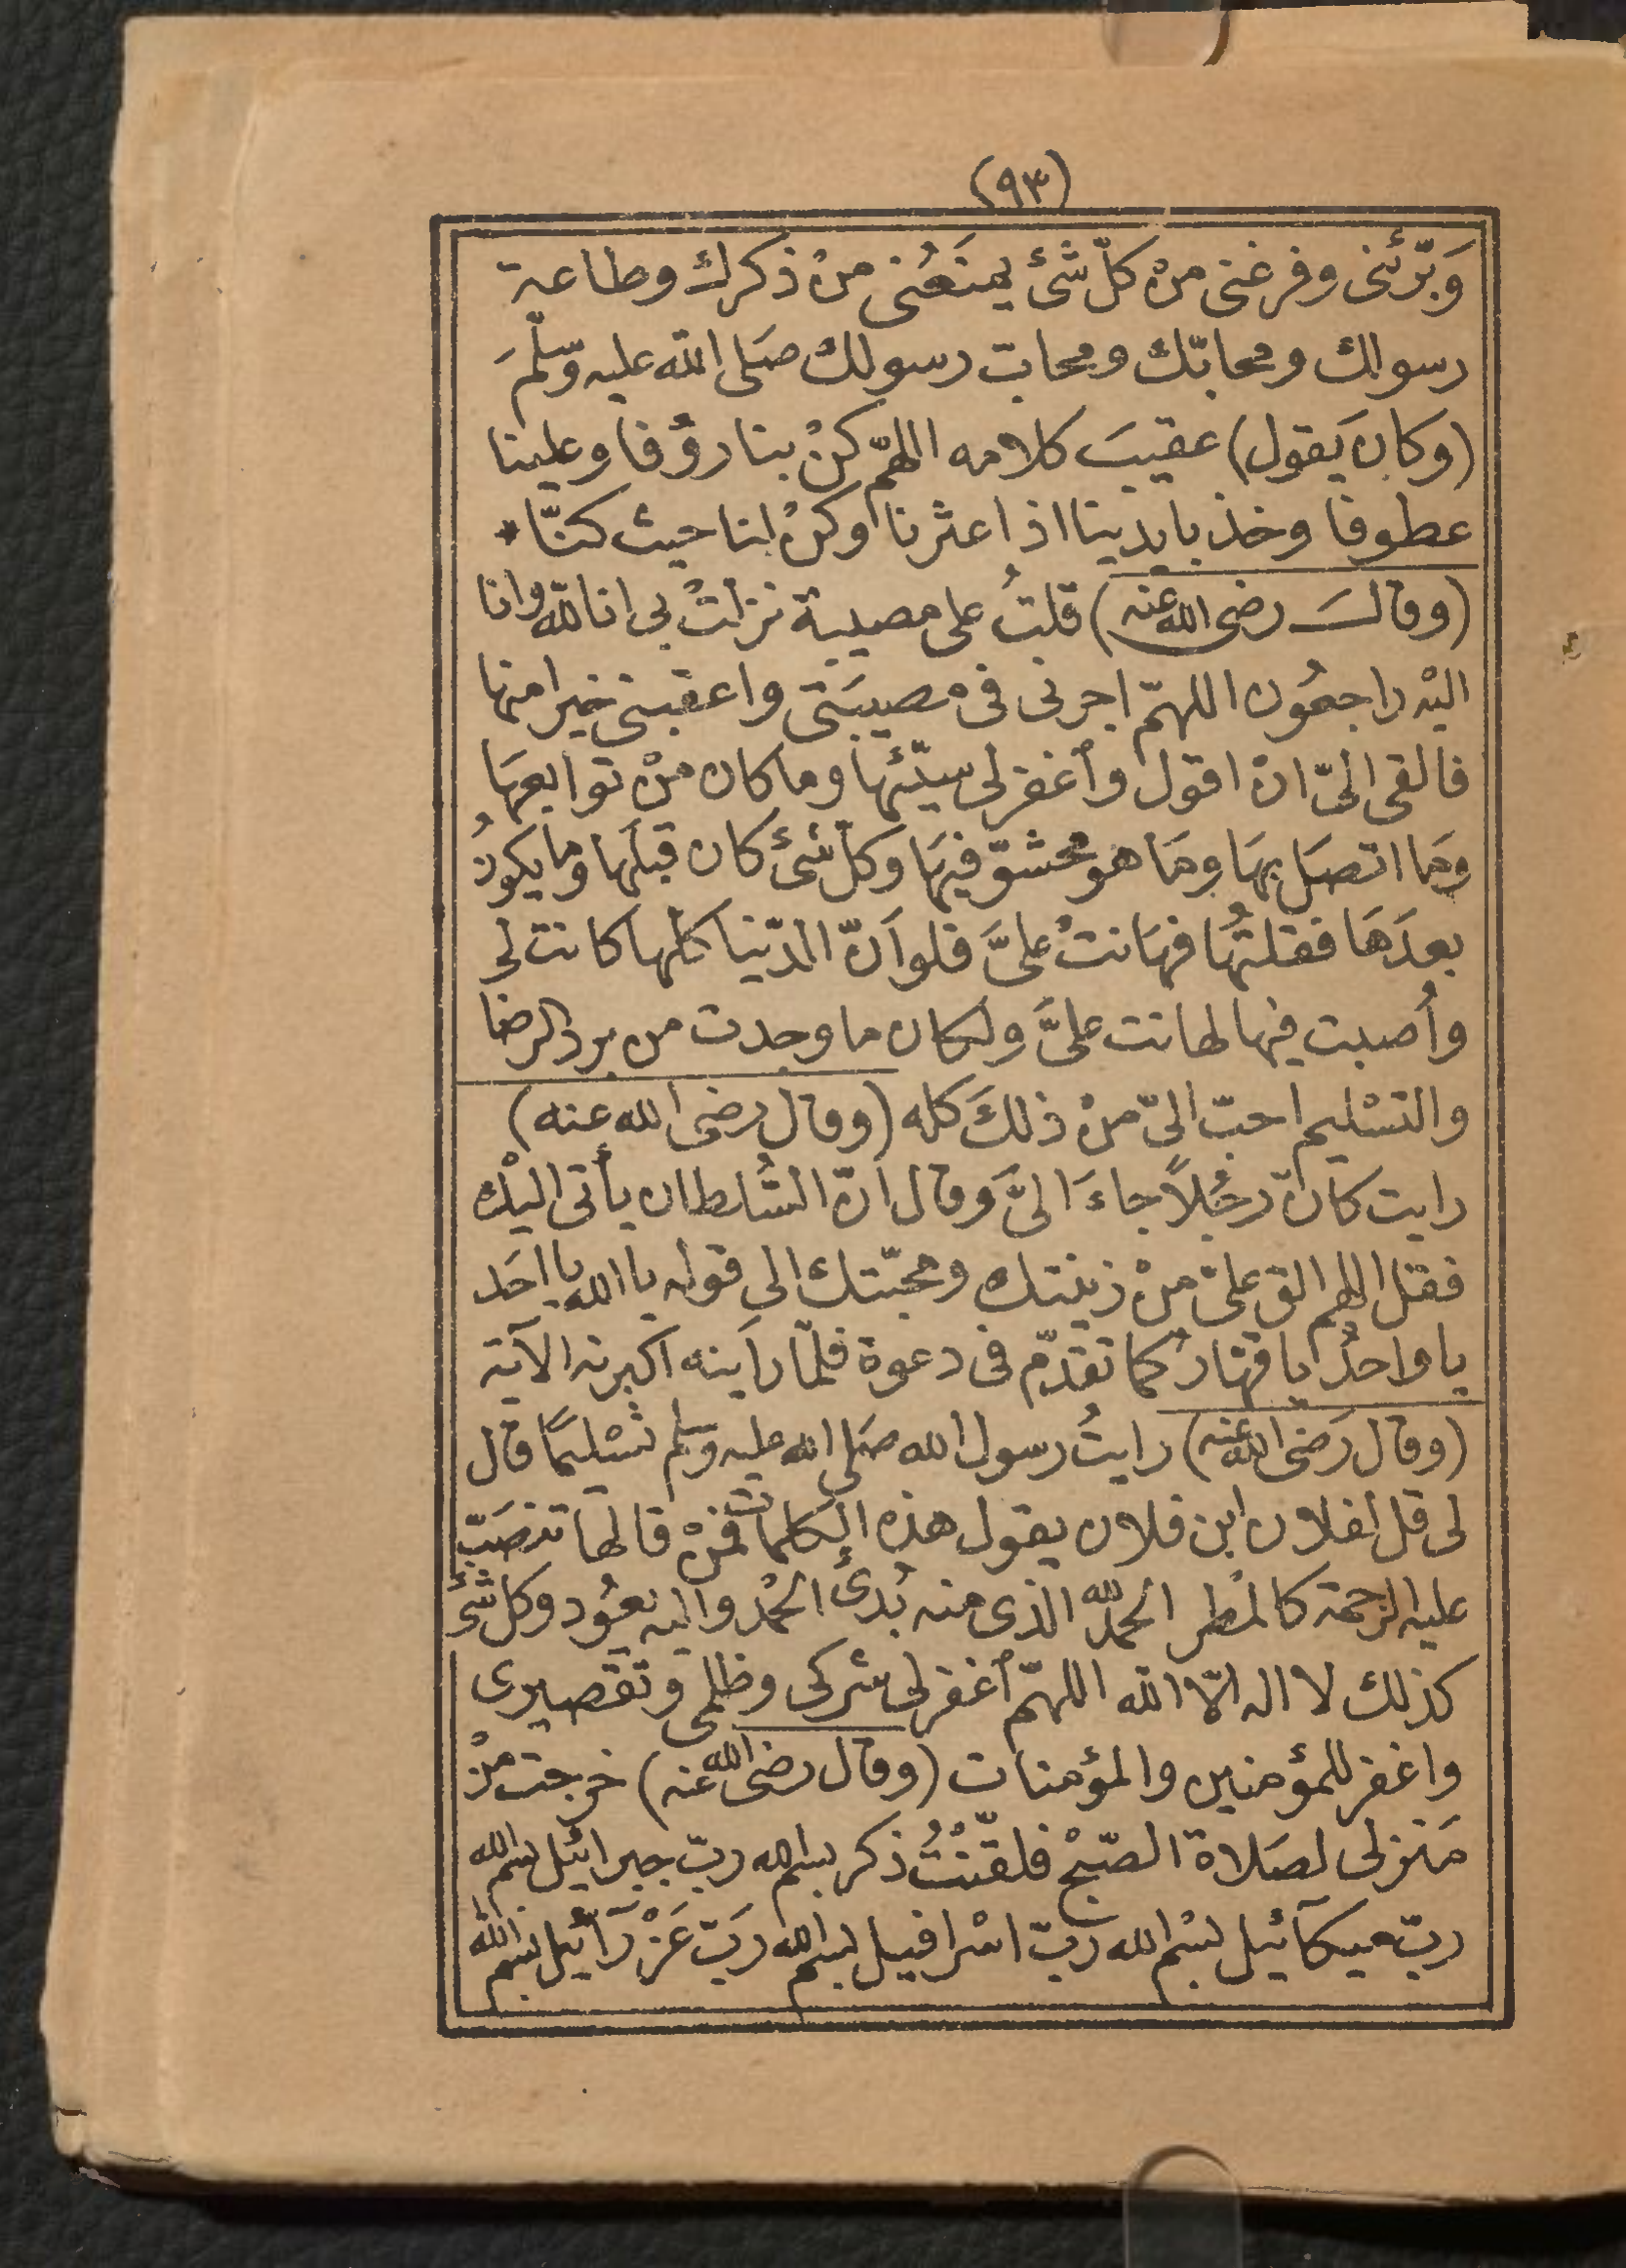 (٩٣)
وَبَرّئنى وفرغنى منْ كلّ شئ يمنَعُنى منْ ذكرك وطاعة
رسولك ومحابّك ومحابّ رسولك صَلى الله عليه وَسلّمَ
(وكانَ يَقول) عقيبَ كلامه اللهمّ كنْ بنا رؤفا وعلينا
عطوفا وخذ بايدينا اذا عثرنا وكنْ لنا حيث كنّا *
(وقالَ رضى الله عنه) قلتُ على مصيبة نزلتْ بى انا لله وانا
اليْه راجعُون اللهمّ اجرنى فى مصيبَتى واعقبنى خيرا منها
فالقى الىّ انْ اقول وأغفر لى سيّئها وما كان منْ توابعهَا
وَما اتصَل بهَا ومَا هو محشوّ فيهَا وكلّ شئ كان قبلَها وما يكونُ
بعدَهَا فقلتُها فهَانتْ علىَّ فلو اَنّ الدّنيا كلّها كانت لى
وأُصبت فيها لهانت علىَّ ولكان ما وجدت من برد الرضا
والتسْليم احبّ الىّ منْ ذلكَ كله (وقال رضى الله عنه)
رايت كانّ رجُلاً جاءَ الىَّ وَقال انّ السُّلطان يأتى اليْك
فقل اللهم الق علىّ منْ زينتك ومحبّتك الى قوله يا الله يا احَد
يا واحدُ يا قهّارُ كما تقدّم فى دعوة فلمّا رأينه اكبرنه الآية
(وقال رَضى الله عنه) رايتُ رسول الله صَلى الله عليه وَسلم تسْليمًا قال
لى قل لفلان ابن فلان يقول هذه الكلمات فمنْ قالها تنصَبّ
عليه الرّحمة كالمْطر الحمد لله الذى منه بُدئ الحمْد واليه يعُود وكل شئ
كذلك لا اله الّا الله اللهمّ أغفر لى شركى وظلمى وتقصيرى
واغفر للمؤمنين والمؤمنات (وقال رضى الله عنه) خرجت منْ
مَنزلى لصَلاة الصّبحْ فلقّنْتُ ذكر بسم الله ربّ جبرائيل بسم الله
ربّ ميكآئيل بسْم الله ربّ اسْرافيل بسم الله رَبّ عَزْرَآئيل بسم الله